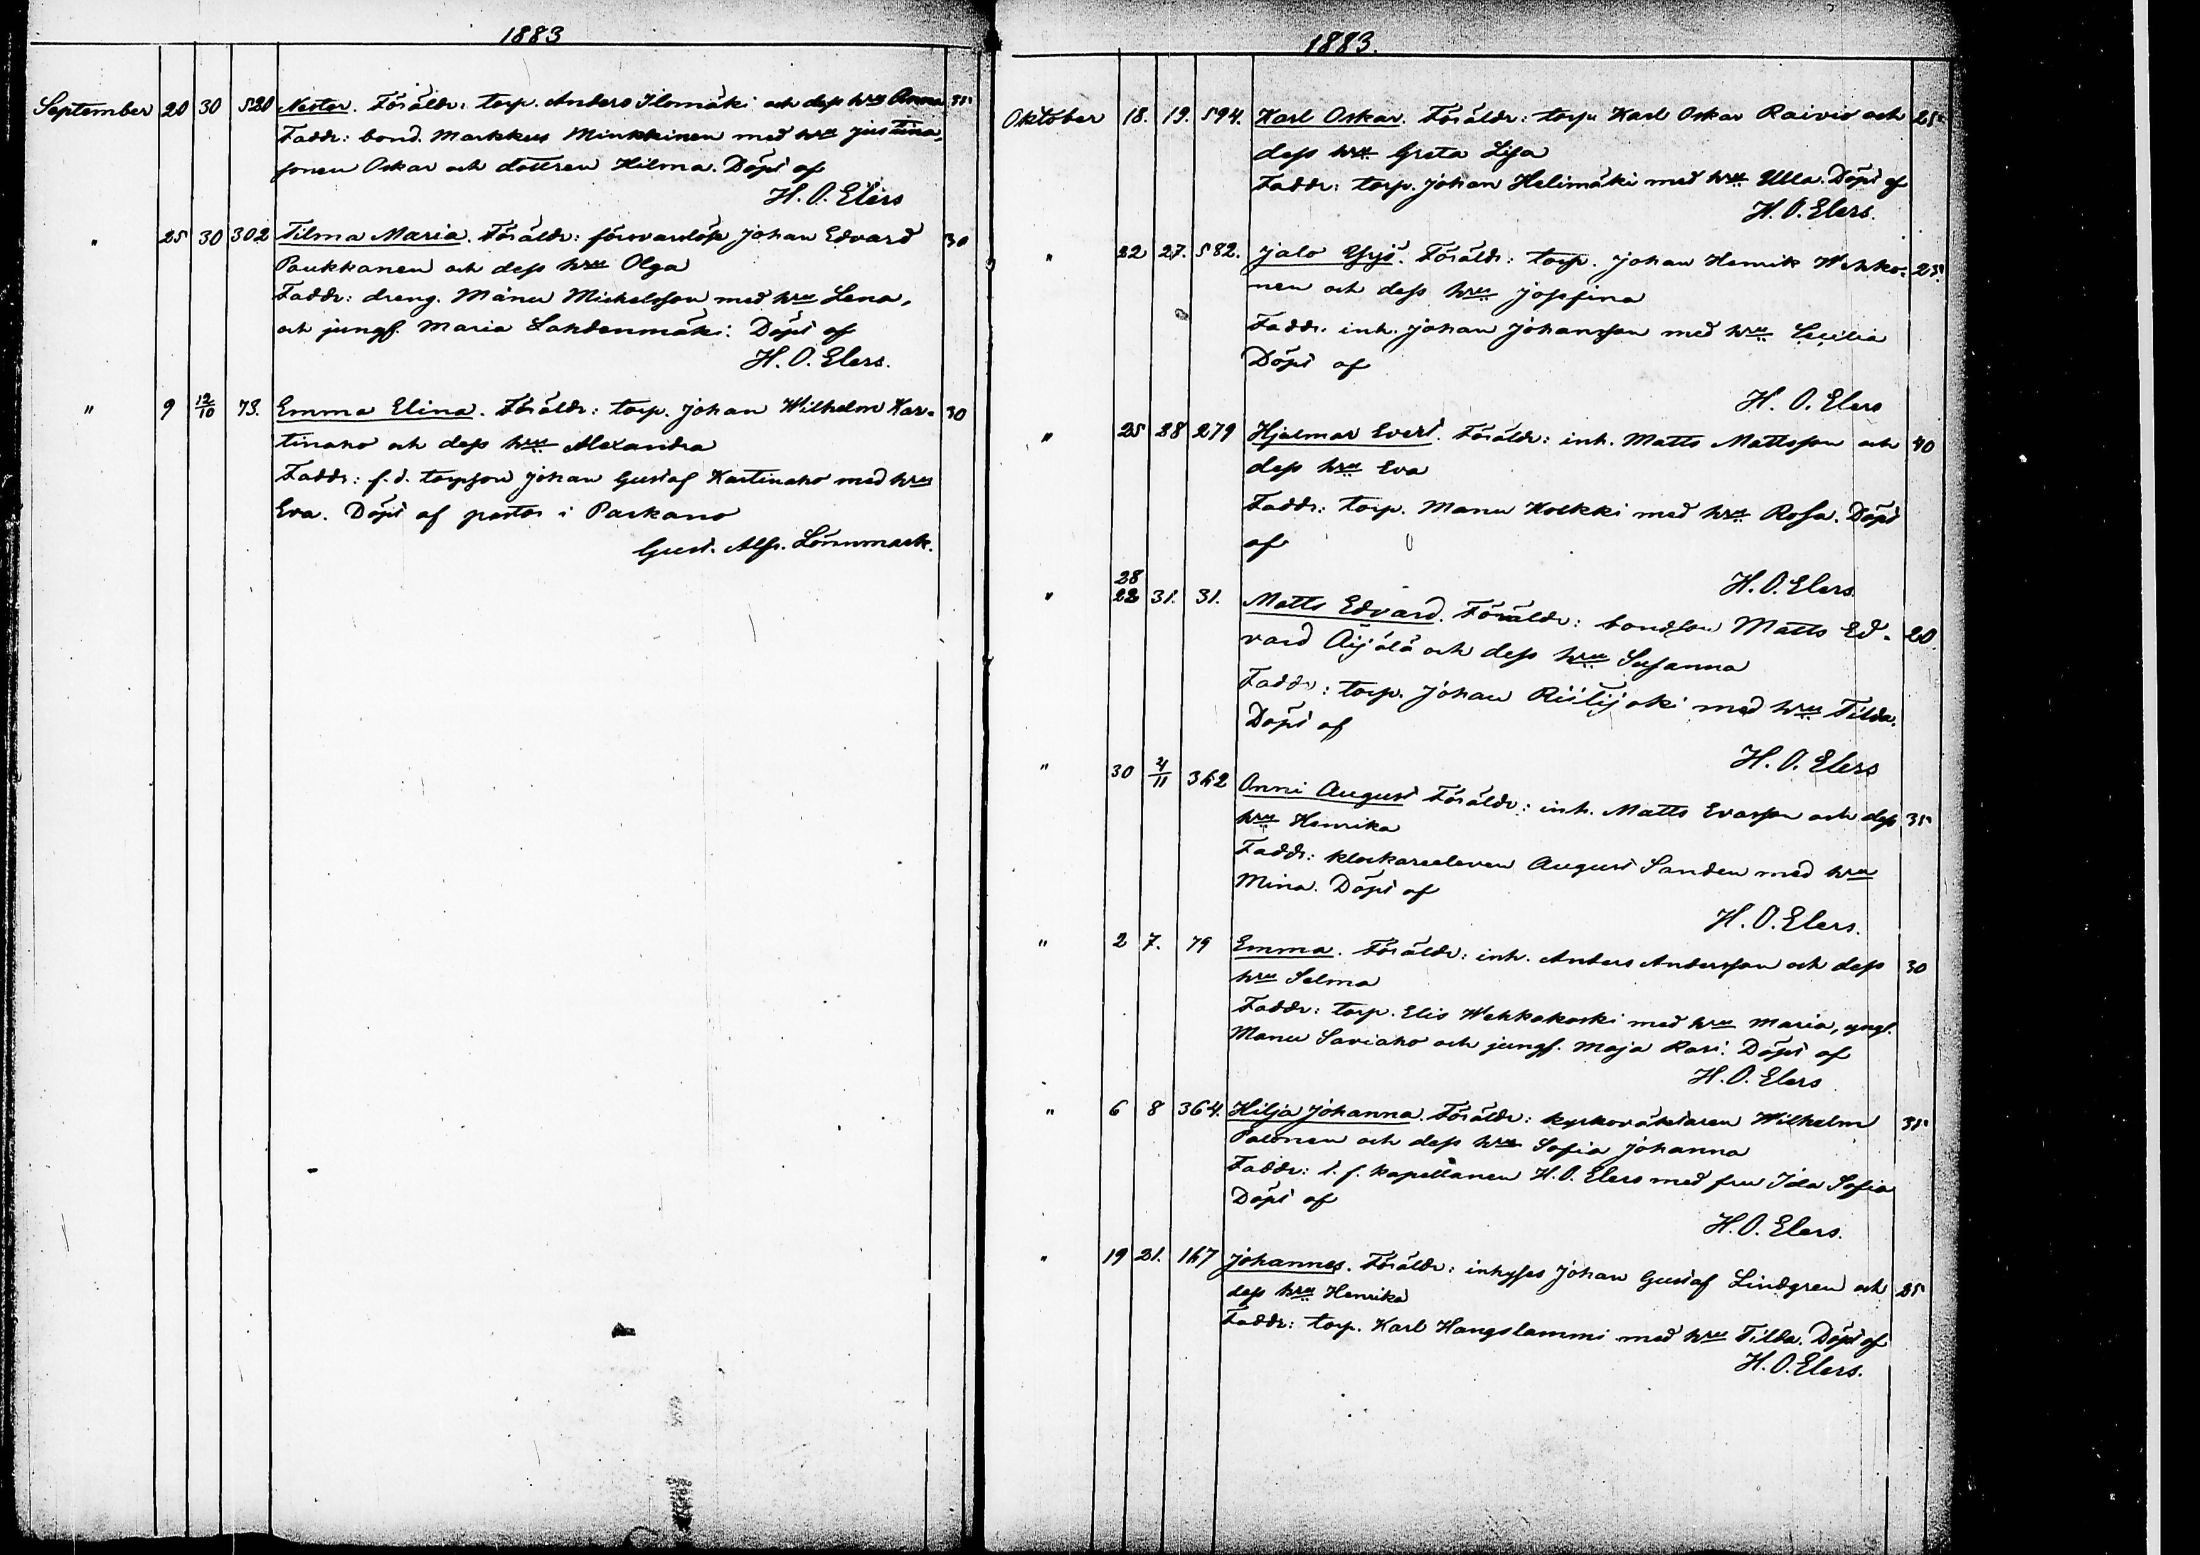 1883
September 20 30 520 Nestor. Föräldr: torp. Anders Ilomäki och dess hru Anna 35
Faddr: bond. Markkus Minkkinen med hru Justina,
sonen Oskar och dottren Hilma. Döpt af
H. O. Elers
" 25 30 302 Tilma Maria. Föräldr: försvarslöse Johan Edvard 30
Paukkanen och dess hru Olga
Faddr: dreng. Manu Michelsson med hru Lena,
och jungf. Maria Lahdenmäki. Döpt af
H. O. Elers.
" 9 12/10 73. Emma Elina. Föräldr: torp. Johan Wilhelm Kar- 30
tinaho och dess hru Alexandra
Faddr: f.d. torpson Johan Gustaf Kartinaho med hru
Eva. Döpt af pastor i Parkano
Gust. Alfr. Lönnmark.
1883.
Oktober 18. 19. 594. Karl Oskar. Föräldr: torp. Karl Oskar Raivio och 25
dess hru Greta Lisa
Faddr: torp. Johan Helimäki med hru Ulla. Döpt af
H. O. Elers.
" 22 27. 582. Jalo Yrjö. Föräldr: torp. Johan Henrik Wehko- 25
nen och dess hru Josefina
Faddr. inh. Johan Johansson med hru Cecilia
Döpt af
H. O. Elers
" 25 28 279 Hjalmar Evert. Föräldr: inh. Matts Mattsson och 40
dess hru Eva
Faddr: torp. Manu Koekki med hru Rosa. Döpt
af
H. O. Elers.
28
" 22 31. 31. Matts Edvard. Föräldr: bondson Matts Ed- 20.
vard Äijälä och dess hru Susanna
Faddr: torp. Johan Ristijoki med hru Tilda.
Döpt af
H. O. Elers
" 30 4/11 362 Onni August Föräldr: inh. Matts Evasson och dess 35
hru Henrika
Faddr: klockareeleven August Sanden med hru
Mina. Döpt af
H. O. Elers.
" 2 7. 79 Emma. Föräldr: inh. Anders Andersson och dess 30
hru Selma
Faddr: torp. Elis Wehkakoski med hru Maria, yngl.
Manu Saviaho och jungf. Maja Rasi. Döpt af
H. O. Elers
" 6 8 364. Hilja Johanna. Föräldr: kyrkoväktaren Wilhelm 35
Palonen och dess hru Sofia Johanna
Faddr: t. f. kapellanen H. O. Elers med fru Ida Sofia
Döpt af
H. O. Elers.
" 19 21. 167 Johannes. Föräldr: inhyses Johan Gustaf Lindgren och 25
dess hru Henrika
Faddr: torp. Karl Hangslammi med hru Tilda. Döpt af
H. O. Elers.